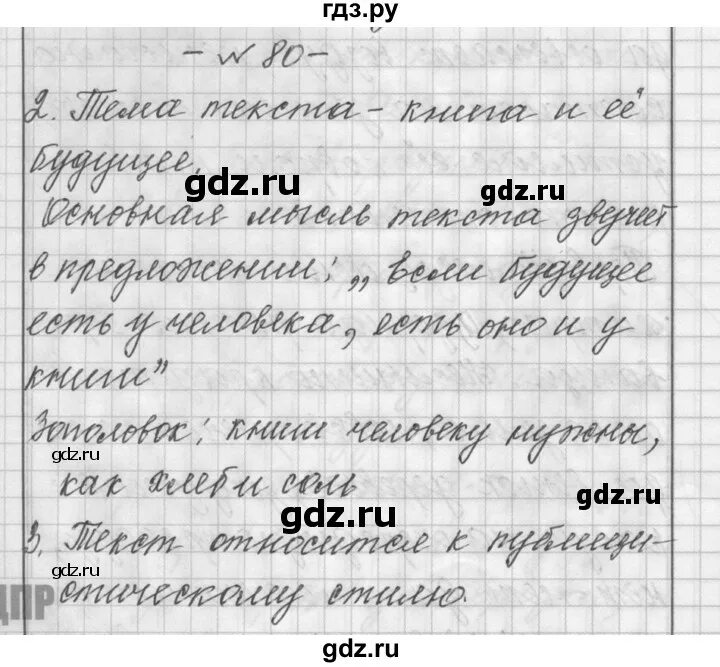 гдз.ру
- № 80 -
2. Тема текста - книга и её
будущее.
gdz.ru
gdz.ru
Основная мысль текста звучит
в предложении: „если будущее
есть у человека, есть оно и у
книги”
Заголовок: книги человеку нужны,
gdz.ru
как хлеб и соль
gdz.ru
gdz.ru
3. Текст относится к публици-
gdz.ru
стическому стилю.
ДПР
gdz.ru